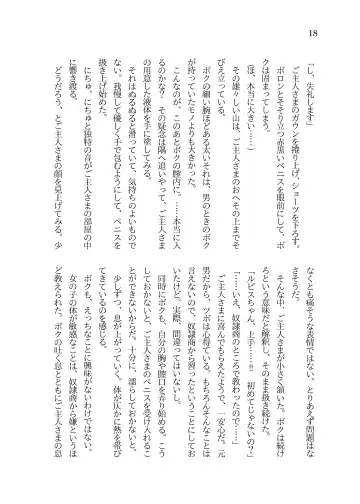 18
「し、失礼します」
ご主人さまのガウンを捲り上げ、ショーツを下ろす。
ボロンとそそり立つ赤黒いペニスを眼前にして、ボ
クは固まってしまう。
(ほ、本当に大きい……)
その雄々しい山は、ご主人さまのおへその上までそ
びえ立っている。
ボクの細い腕ほどある太いそれは、男のときのボク
が持っていたモノよりも大きかった。
こんなのが、このあとボクの膣内に。……本当に入
るのかな？　その疑念は隅へ追いやって、ご主人さま
の用意した液体を手に塗してみる。
それはぬるぬると滑っていて、気持ちのよいもので
ない。我慢して優しく手で包むようにして、ペニスを
扱き上げ始めた。
にちゅ、にちゅと独特の音がご主人さまの部屋の中
に響き渡る。
どうだろう、とご主人さまの顔を見上げてみる。少
なくとも痛そうな表情ではない。とりあえず問題はな
さそうだ。
そんな中、ご主人さまが小さく頷いた。ボクは続け
ろという意味だと解釈し、そのまま扱き続けた。
「ルピスちゃん、上手……‼　初めてじゃないの？」
「……いえ、奴隷商のところで教わったので……」
ご主人さまに喜んでもらえたようで、一安心だ。元
男だから、ツボは心得ている。もちろんそんなことは
言えないので、奴隷商から習ったということにしてお
いたけど。実際、間違ってはいないし。
同時にボクも、自分の胸や膣口を弄り始める。こう
しておかないと、ご主人さまのペニスを受け入れるこ
とができないからだ。十分に、濡らしておかないと。
少しずつ、息が上がっていく。体が仄かに熱を帯び
てきているのを感じる。
ボクも、えっちなことに興味がないわけではない。
女の子の体が敏感なことは、奴隷商から嫌というほ
ど教えられた。ボクの吐く息とともにご主人さまの息